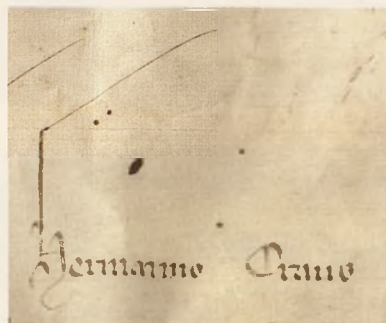 Hermanno Crans